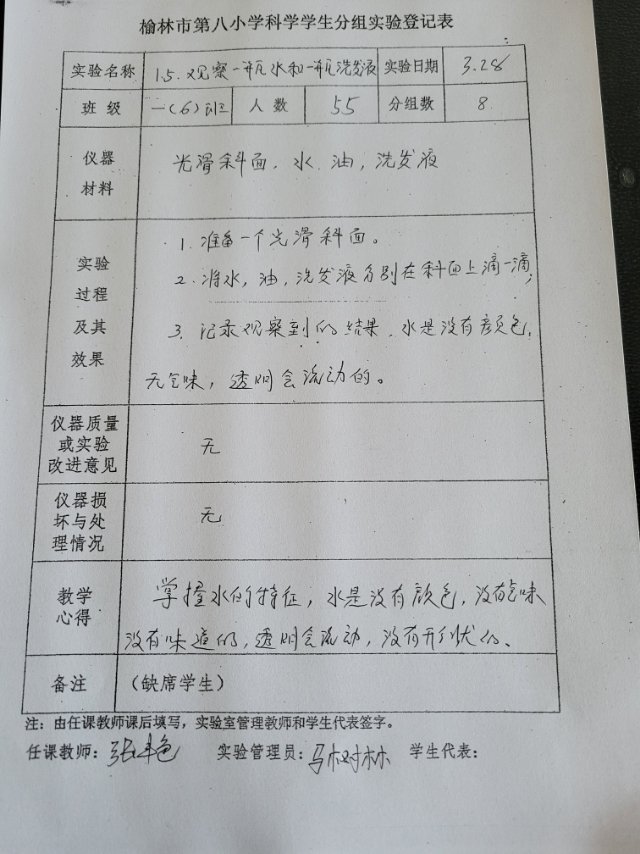 榆林市第八小学科学学生分组实验登记表
实验名称 1.5.观察一瓶水和一瓶洗发液 实验日期 3.28
班 级 一(6)班 人 数 55 分组数 8
仪器
材料
光滑斜面、水、油,洗发液
实验
过程
及其
效果
1.准备一个光滑斜面。
2.将水,油,洗发液分别在斜面上滴一滴,
3.记录观察到的结果.水是没有颜色,
无气味,透明会流动的。
仪器质量
或实验
改进意见
无
仪器损
坏与处
理情况
无
教学
心得
掌握水的特征,水是没有颜色,没有气味
没有味道的,透明会流动,没有形状的、
备注 (缺席学生)
注:由任课教师课后填写,实验室管理教师和学生代表签字。
任课教师: 实验管理员:马树林 学生代表: